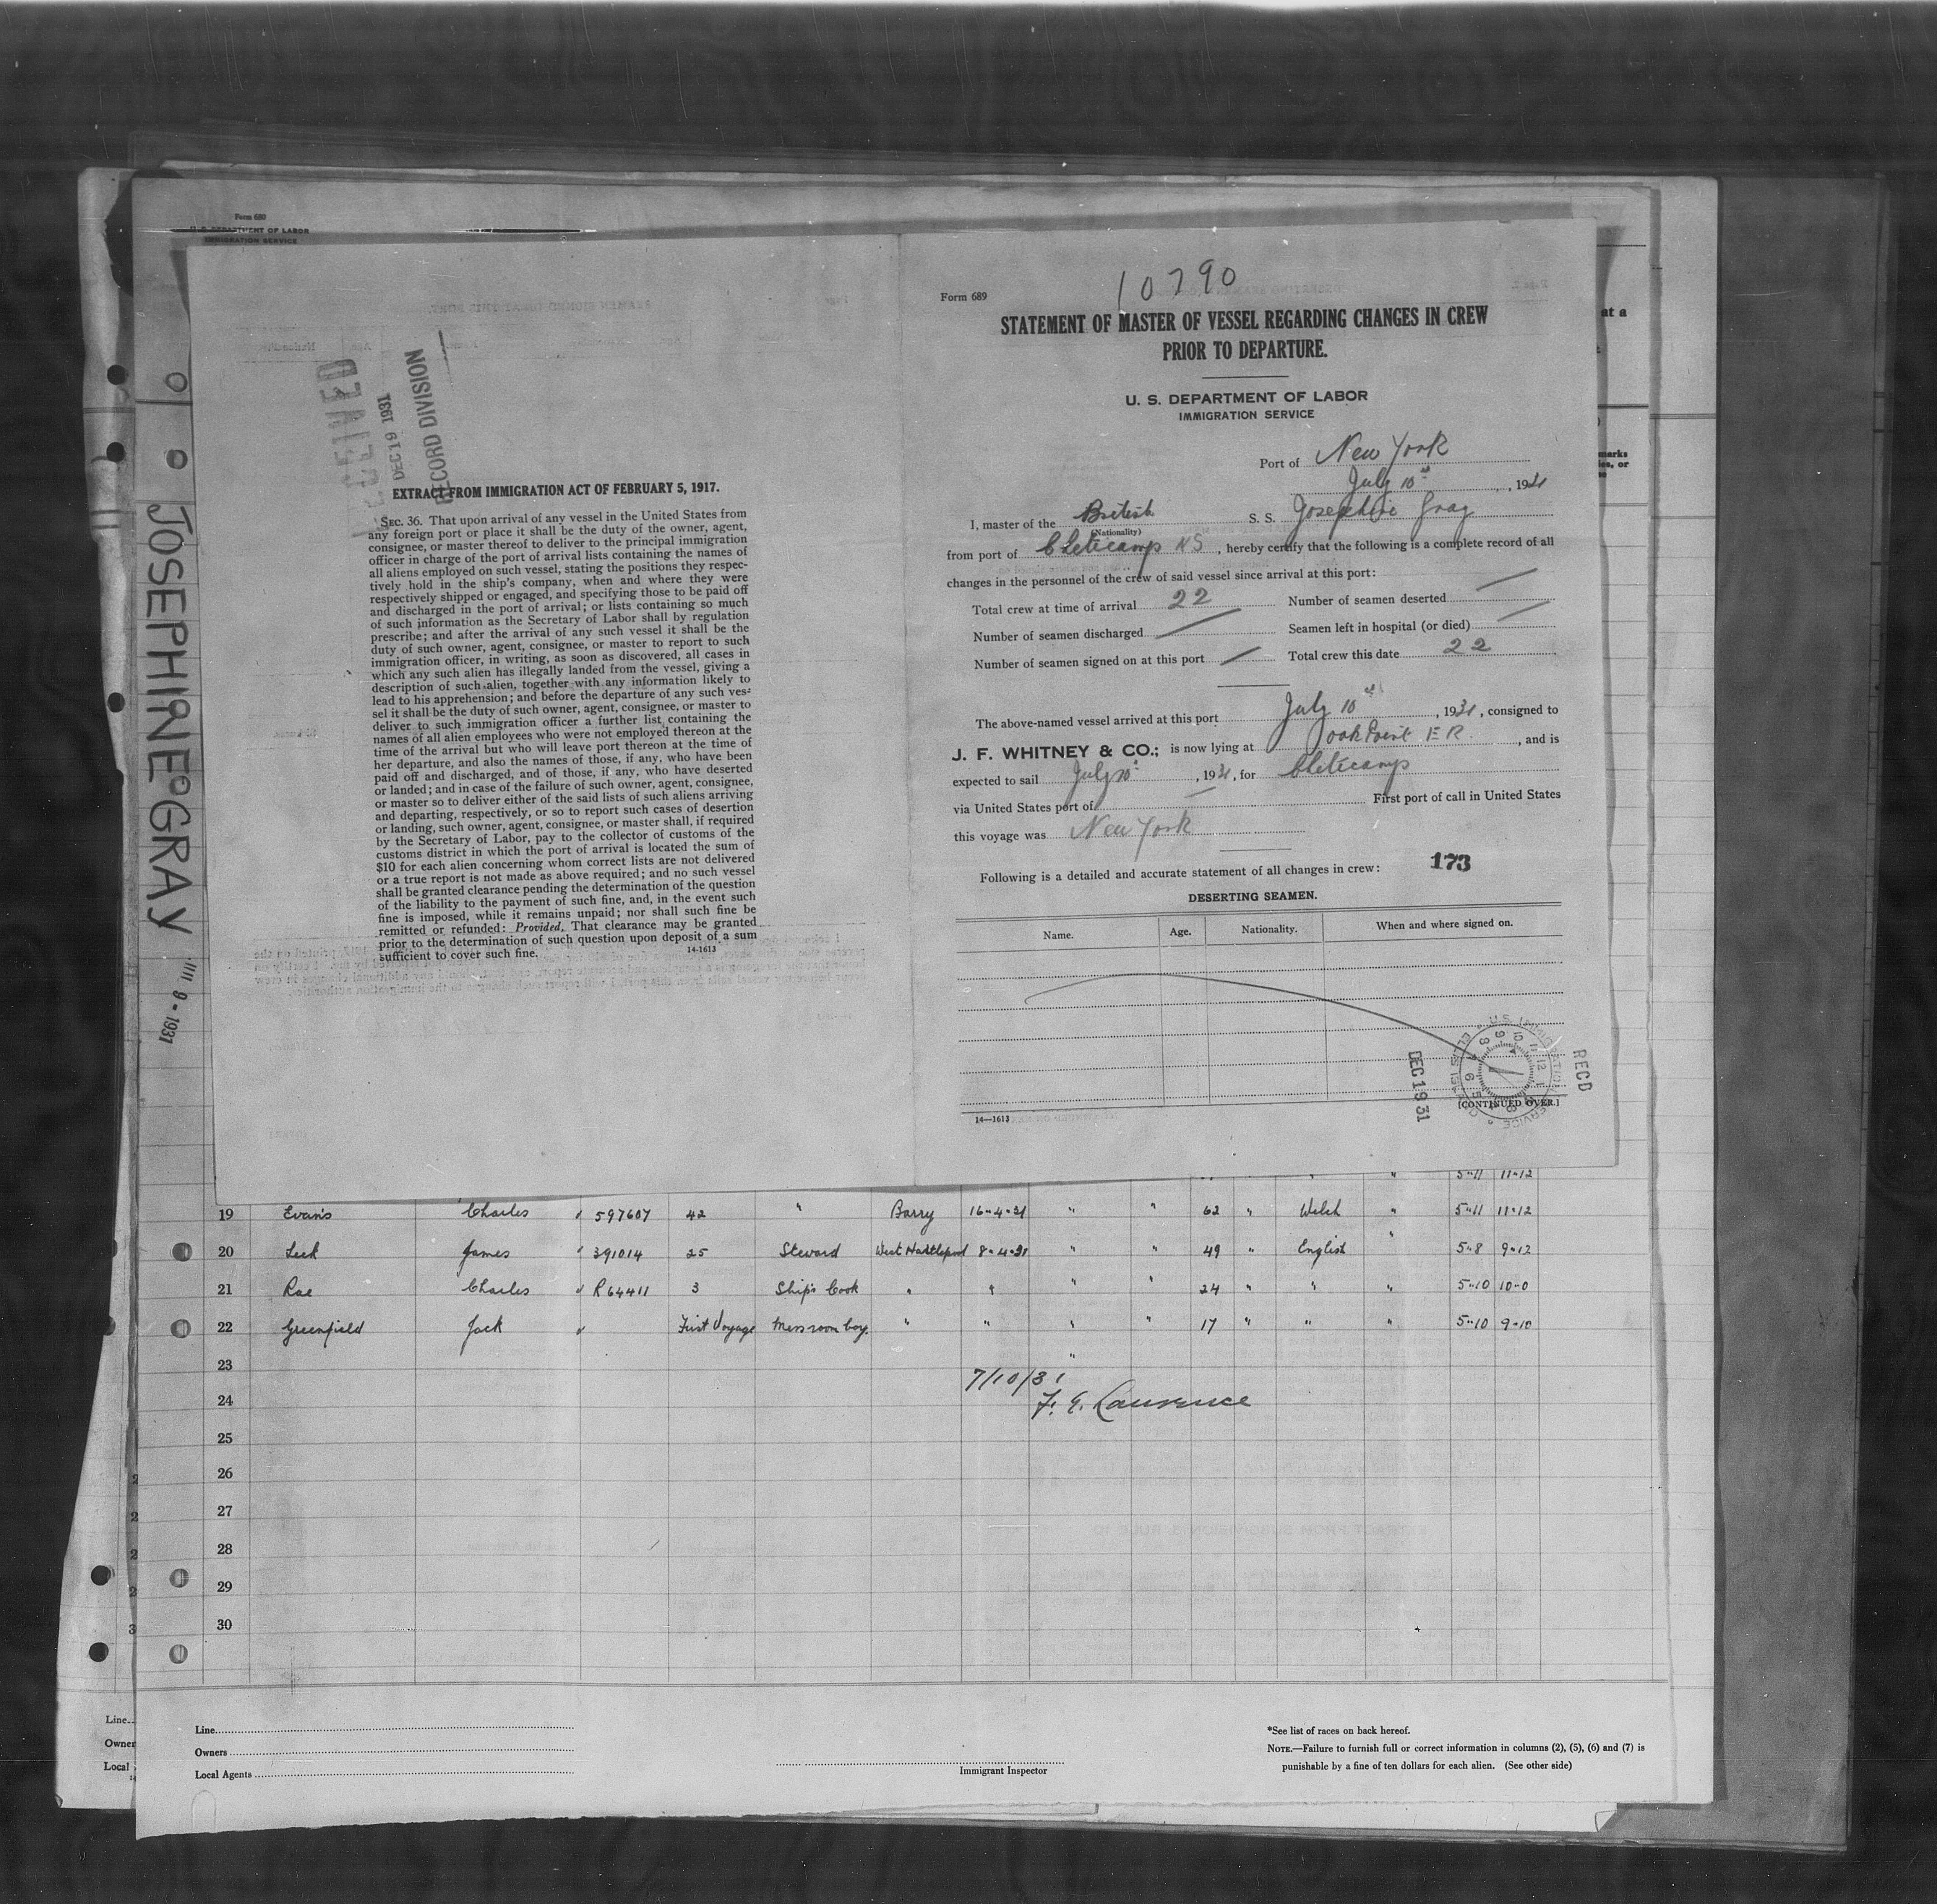 Form 680
U. S. DEPARTMENT OF LABOR
IMMIGRATION SERVICE
JOSEPHINE GRAY
9 - 1931
RECEIVED
DEC 19 1931
RECORD DIVISION
EXTRACT FROM IMMIGRATION ACT OF FEBRUARY 5, 1917.
SEC. 36. That upon arrival of any vessel in the United States from
any foreign port or place it shall be the duty of the owner, agent,
consignee, or master thereof to deliver to the principal immigration
officer in charge of the port of arrival lists containing the names of
all aliens employed on such vessel, stating the positions they respec-
tively hold in the ship's company, when and where they were
respectively shipped or engaged, and specifying those to be paid off
and discharged in the port of arrival; or lists containing so much
of such information as the Secretary of Labor shall by regulation
prescribe; and after the arrival of any such vessel it shall be the
duty of such owner, agent, consignee, or master to report to such
immigration officer, in writing, as soon as discovered, all cases in
which any such alien has illegally landed from the vessel, giving a
description of such alien, together with any information likely to
lead to his apprehension; and before the departure of any such ves-
sel it shall be the duty of such owner, agent, consignee, or master to
deliver to such immigration officer a further list containing the
names of all alien employees who were not employed thereon at the
time of the arrival but who will leave port thereon at the time of
her departure, and also the names of those, if any, who have been
paid off and discharged, and of those, if any, who have deserted
or landed; and in case of the failure of such owner, agent, consignee,
or master so to deliver either of the said lists of such aliens arriving
and departing, respectively, or so to report such cases of desertion
or landing, such owner, agent, consignee, or master shall, if required
by the Secretary of Labor, pay to the collector of customs of the
customs district in which the port of arrival is located the sum of
$10 for each alien concerning whom correct lists are not delivered
or a true report is not made as above required; and no such vessel
shall be granted clearance pending the determination of the question
of the liability to the payment of such fine, and, in the event such
fine is imposed, while it remains unpaid; nor shall such fine be
remitted or refunded: Provided, That clearance may be granted
prior to the determination of such question upon deposit of a sum
sufficient to cover such fine. 14-1613
10790
Form 689
STATEMENT OF MASTER OF VESSEL REGARDING CHANGES IN CREW
PRIOR TO DEPARTURE.
U. S. DEPARTMENT OF LABOR
IMMIGRATION SERVICE
Port of New York
July 10th, 1931
I, master of the British S. S. Josephine Gray
(Nationality)
from port of Cheticamp NS, hereby certify that the following is a complete record of all
changes in the personnel of the crew of said vessel since arrival at this port:
Total crew at time of arrival 22 Number of seamen deserted
Number of seamen discharged Seamen left in hospital (or died)
Number of seamen signed on at this port Total crew this date 22
The above-named vessel arrived at this port July 10th, 1931, consigned to
J. F. WHITNEY & CO.; is now lying at Oak Point E R., and is
expected to sail July 10th, 1931, for Cheticamp
via United States port of First port of call in United States
this voyage was New York
Following is a detailed and accurate statement of all changes in crew: 173
DESERTING SEAMEN.
Name. Age. Nationality. When and where signed on.
DEC 19 31
RECD
14—1613
[CONTINUED OVER.]
5-11 11-12
19 Evans Charles 597607 42 " Barry 16-4-31 " " 62 " Welsh " 5-11 11-12
20 Leek James 391014 25 Steward West Hartlepool 8-4-31 " " 49 " English " 5-8 9-12
21 Rae Charles R 64411 3 Ship's Cook " " " " 24 " " " 5-10 10-0
22 Greenfield Jack First Voyage Mess room boy. " " " " 17 " " " 5-10 9-10
23 "
7/10/31
24 F. G. Laurence
25
26
27
28
29
30
Line
Owners
Local Agents
Immigrant Inspector
*See list of races on back hereof.
NOTE.—Failure to furnish full or correct information in columns (2), (5), (6) and (7) is
punishable by a fine of ten dollars for each alien. (See other side)